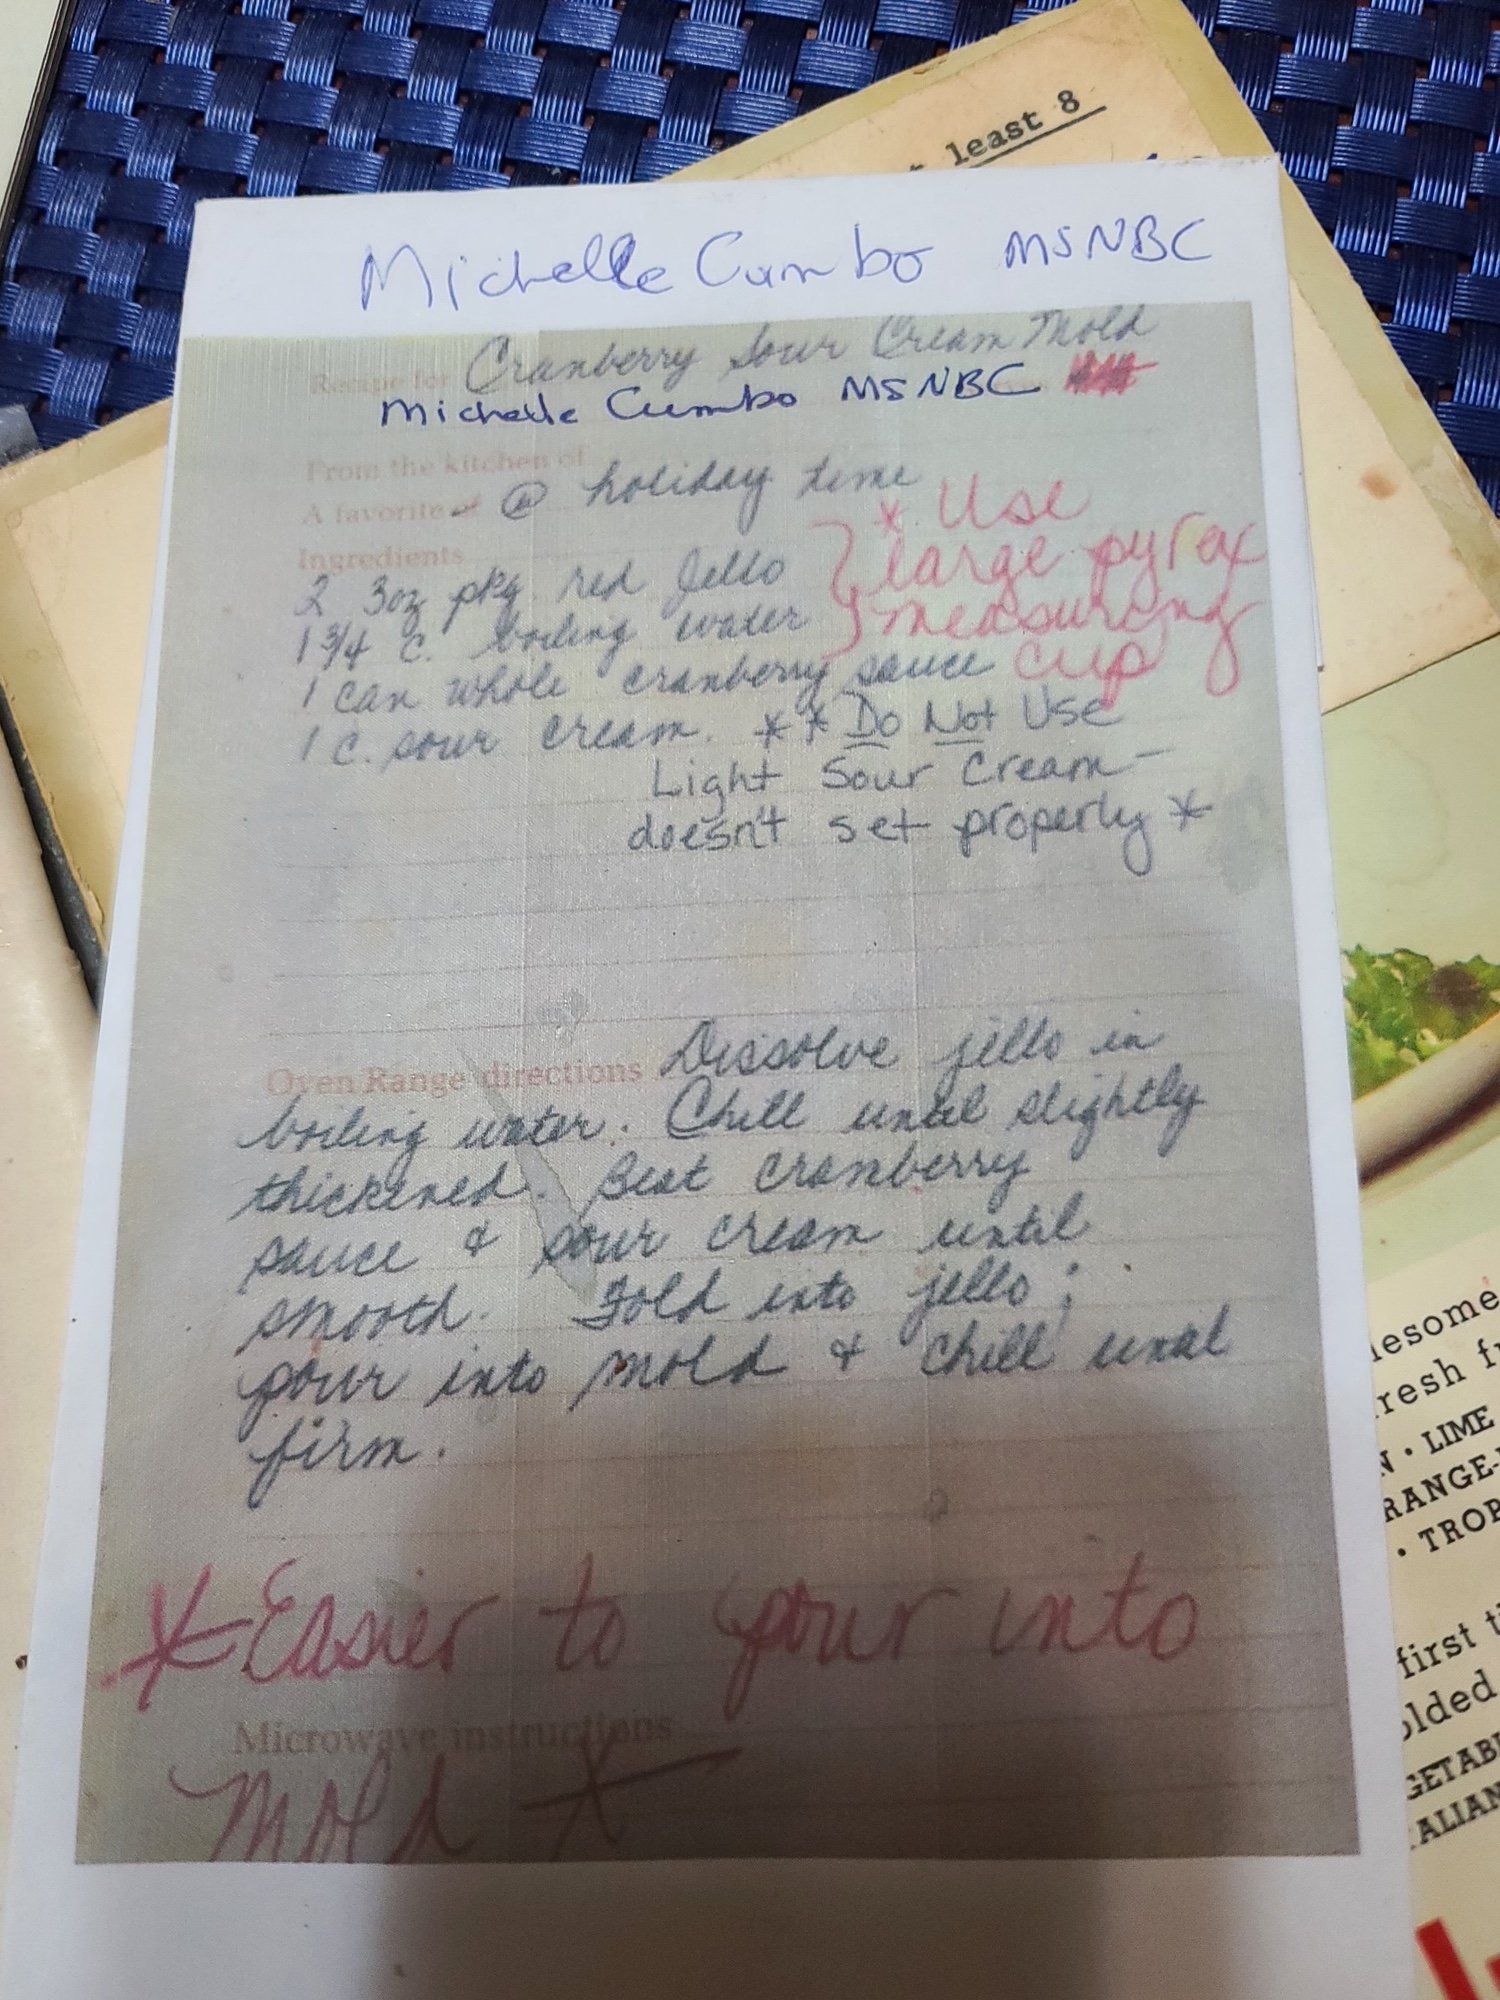 least 8
Michelle Cumbo MSNBC
Recipe for Cranberry Sour Cream Mold
Michelle Cumbo MSNBC
From the kitchen of
A favorite of @ holiday time
* Use
large pyrex
measuring
cup
Ingredients
2 3oz pkg red Jello
1 3/4 c. boiling water
1 can whole cranberry sauce
1 c. sour cream. ** Do Not Use
Light Sour Cream-
doesn't set properly *
Oven Range directions Dissolve jello in
boiling water. Chill until slightly
thickened. Beat cranberry
sauce & sour cream until
smooth. Fold into jello;
pour into mold & chill until
firm.
* Easier to pour into
Microwave instructions
Mold *
lesome
resh f
N • LIME
RANGE-
• TROP
first t
olded
GETAB
ALIAN